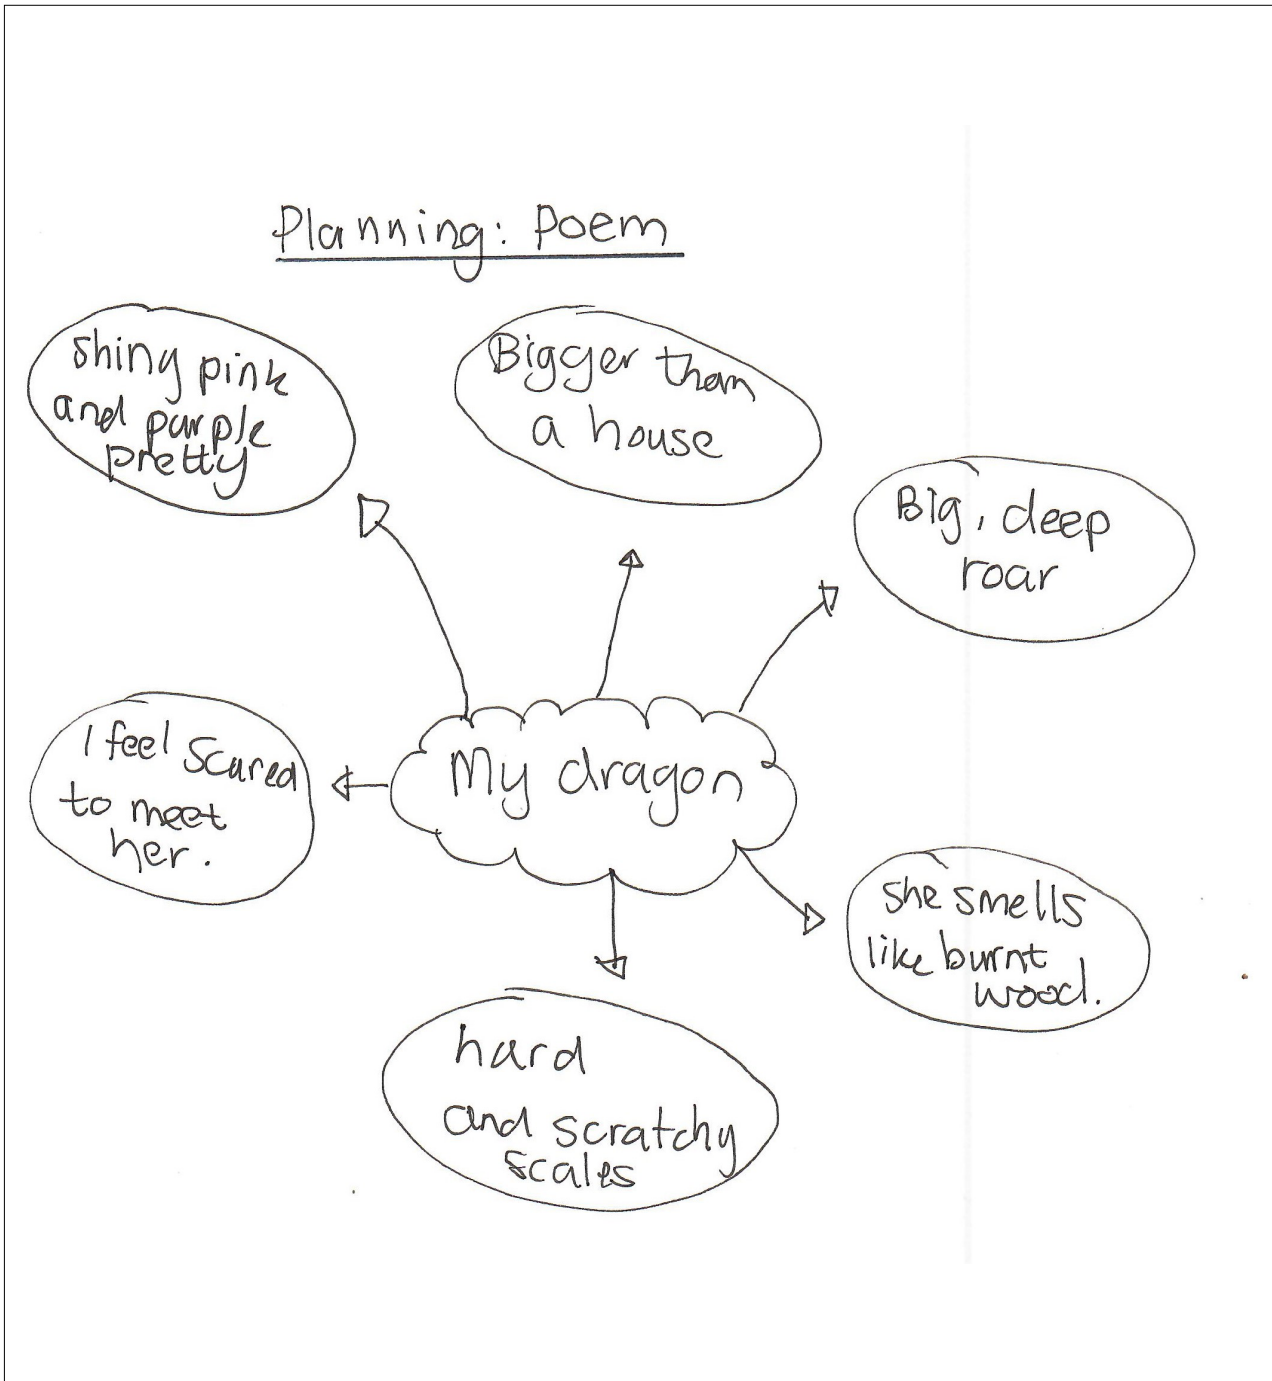 Planning: Poem
Shiny pink
and purple
pretty
Bigger than
a house
Big, deep
roar
I feel scared
to meet
her.
My dragon
she smells
like burnt
wood.
hard
and scratchy
scales